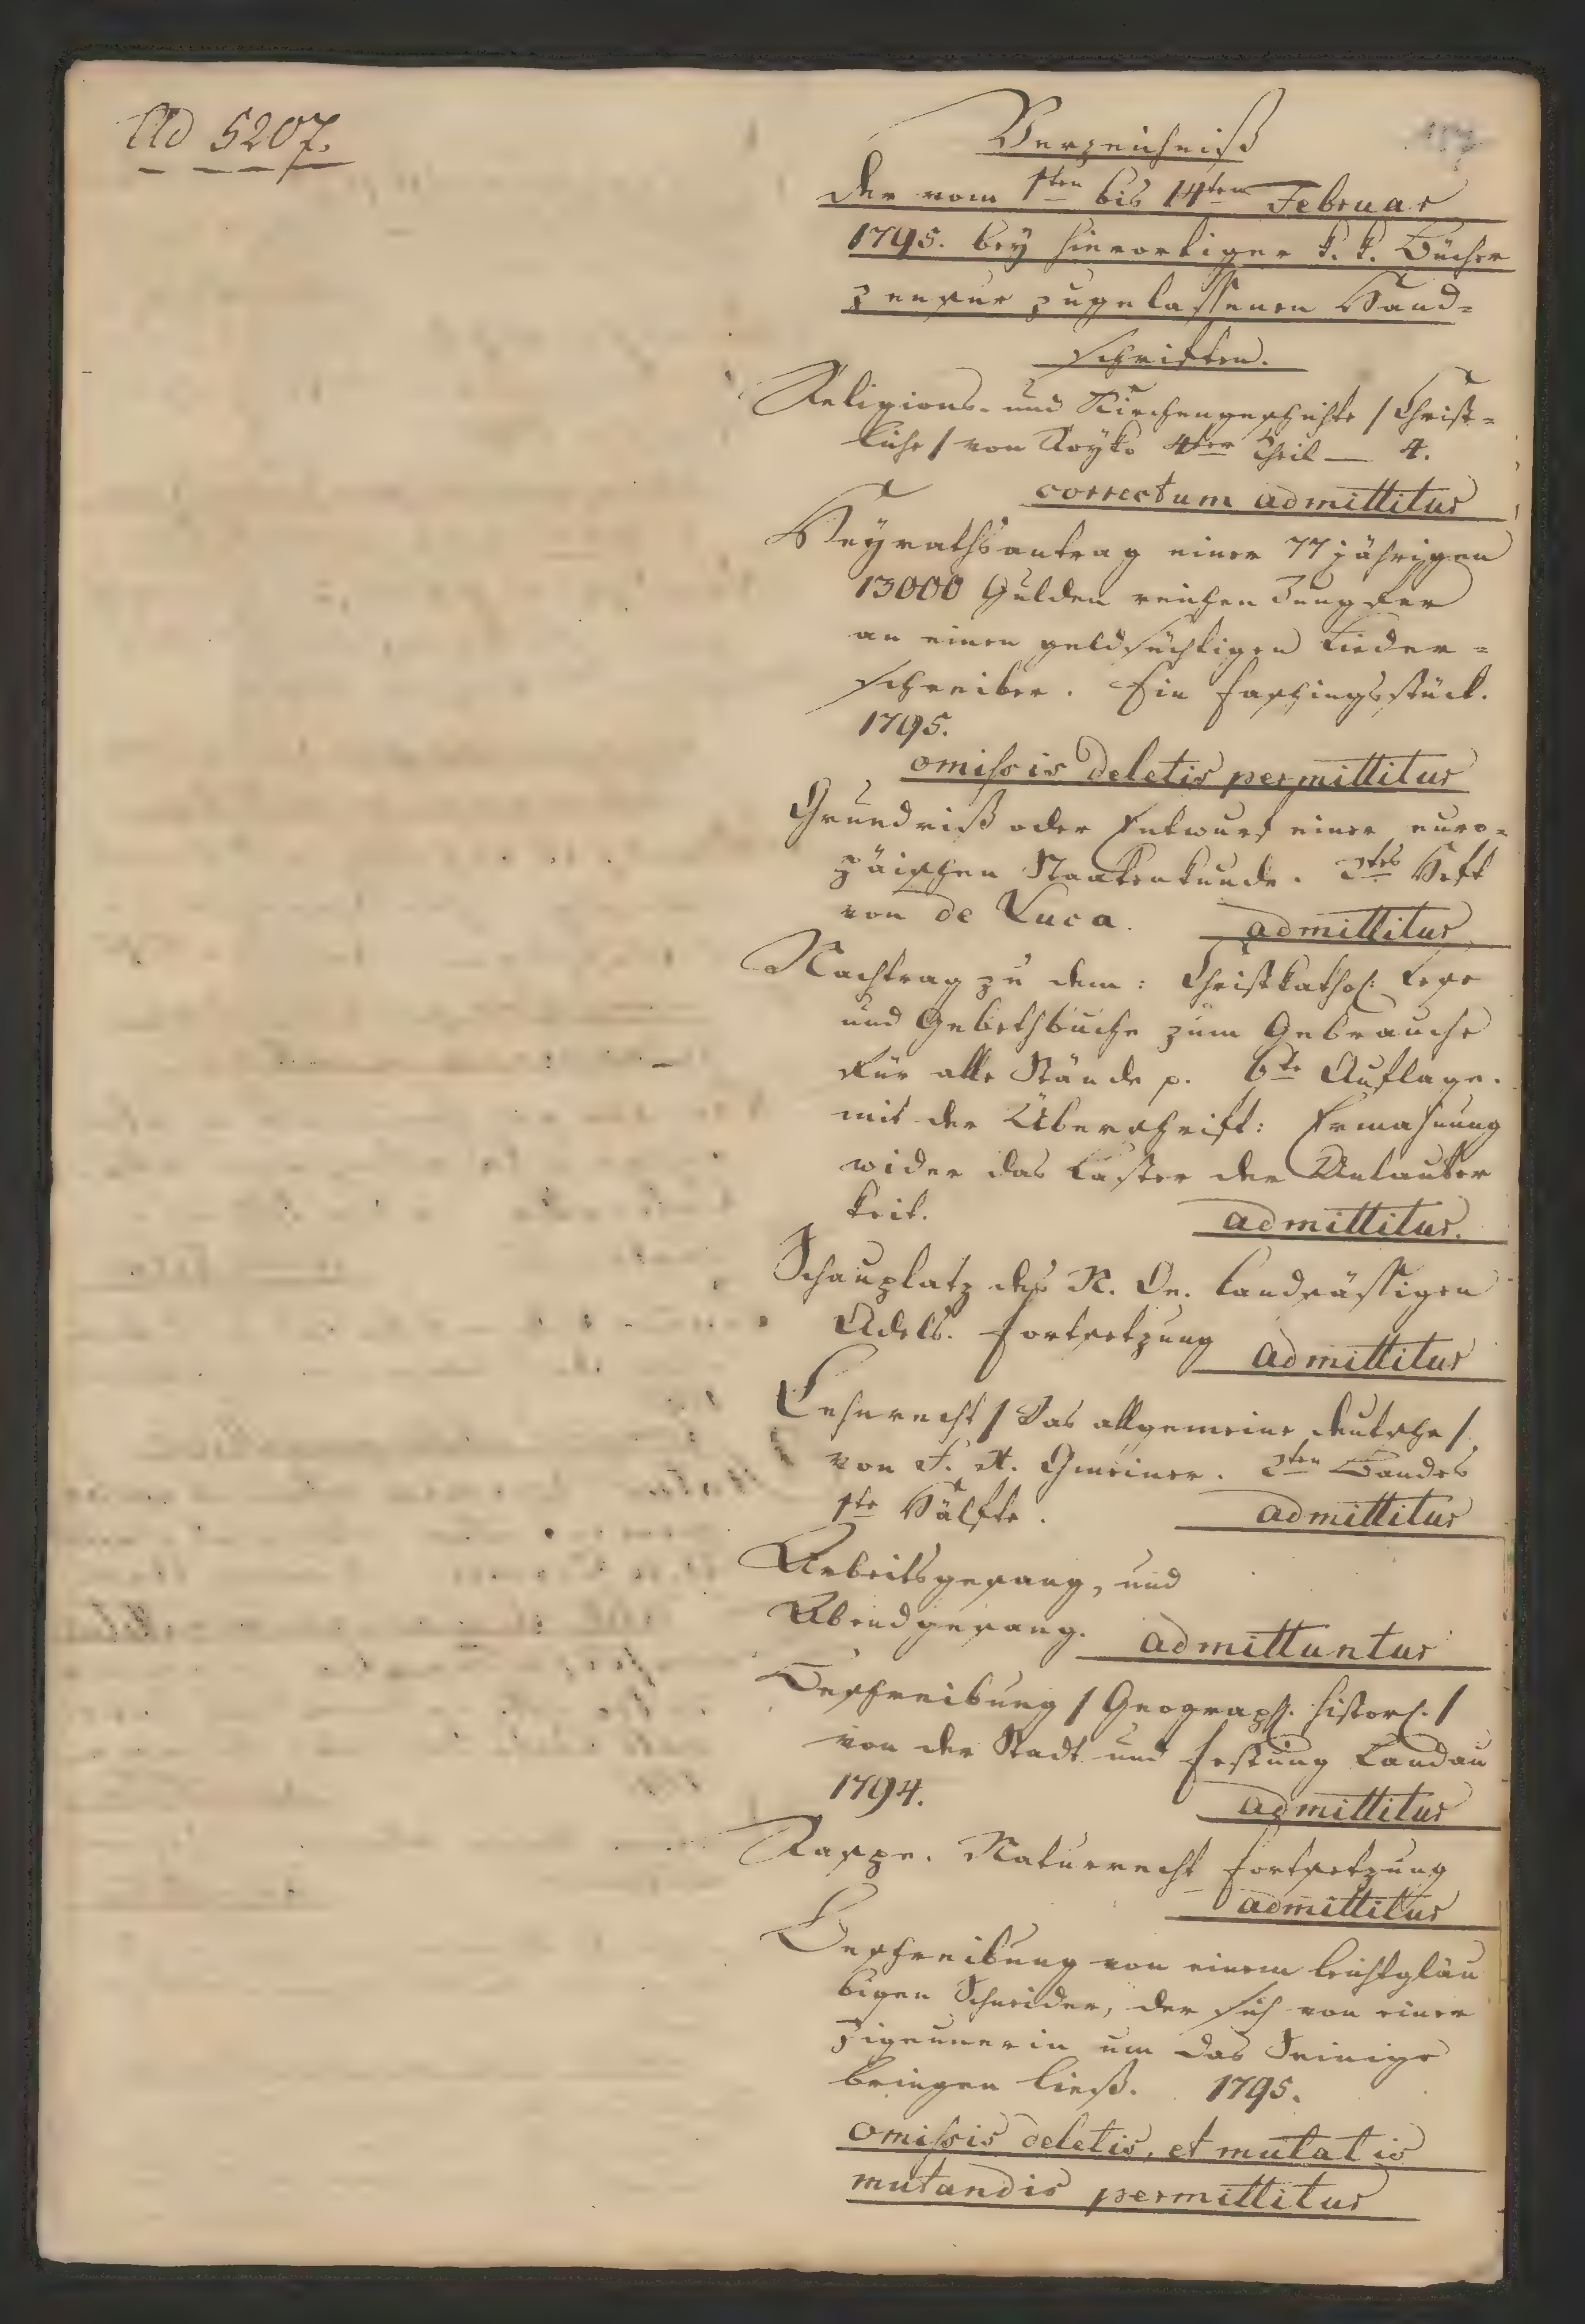 Ad 5207.
Verzeichniß
der vom 1ten bis 14ten Februar
1795. bey hierortiger k. k. Bücher
zensur zugelassenen Hand=
schriften.
Religions- und Kirchengeschichte / Christ=
liche / von Royko 4ter Theil — 4.
correctum admittitur
Heyrathsantrag einer 77 jährigen
13000 Gulden reichen Jungfer
an einen geldsüchtigen Lieder=
schreiber. Ein Faschingsstück.
1795.
omissis deletis permittitur
Grundriß oder Entwurf einer euro=
päischen Staatenkunde. 2tes Heft
von de Luca. admittitur
Nachtrag zu dem: Christkathol: Lese
und Gebethbuche zum Gebrauche
für alle Stände p. 6te Auflage.
mit der Überschrift: Ermahnung
wider das Laster der Unlauter
keit. admittitur.
Schauplatz des N. Oe. landsässigen
Adels. Fortsetzung admittitur
Lehenrecht / Das allgemeine deutsche /
von F. X. Gmeiner. 2ten Bandes
1te Hälfte. admittitur
Arbeitsgesang, und
Abendgesang. admittuntur
Beschreibung / Geograph. histor. /
von der Stadt und Festung Landau
1794. admittitur
Naturrecht Fortsetzung
admittitur
Beschreibung von einem leichtgläu
bigen Schneider, der sich von einer
Zigeunerin um das Seinige
bringen ließ. 1795.
omissis deletis, et mutatis
mutandis permittitur